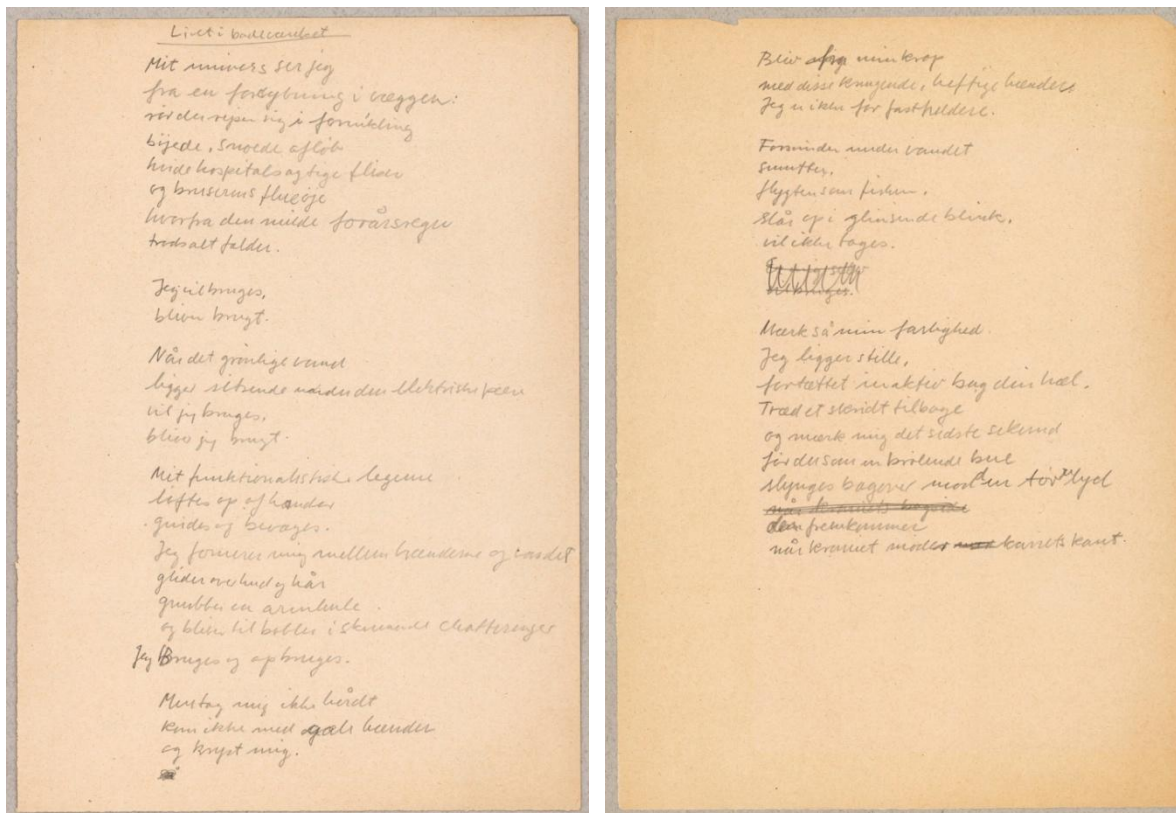 Livet i badeværelset
Mit univers ser jeg
fra en fordybning i væggen:
rør der rejser sig i fornikling
bøjede, snoede afløb
hvide hospitalsagtige fliser
og bruserens flueøje
hvorfra den milde forårsregn
trods alt falder.
Jeg vil bruges,
bliver brugt.
Når det grønlige vand
ligger sitrende under den elektriske pære
vil jeg bruges,
bliver jeg brugt.
Mit funktionalistiske legeme
løftes op af hænder
guides og bevæges.
Jeg formerer mig mellem hænderne og vandet
glider over hud og hår
gnubber en armhule
og bliver til bobler i skummende
Jeg Bruges og opbruges.
Men tag mig ikke hårdt
kom ikke med gale hænder
og kryst mig.
Bliv min krop
med disse knugende, heftige hænder,
Jeg er ikke for fastholdere.
Forsvinder under vandet
smutter,
flygter som fisken,
slår op i glinsende blink,
vil ikke tages.
Mærk så min farlighed.
Jeg ligger stille,
fortættet inaktiv bag din hæl.
Træd et skridt tilbage
og mærk mig det sidste sekund
før du som en brølende
slynges bagover mod den tørre lyd
der fremkommer
når kraniet møder karrets kant.